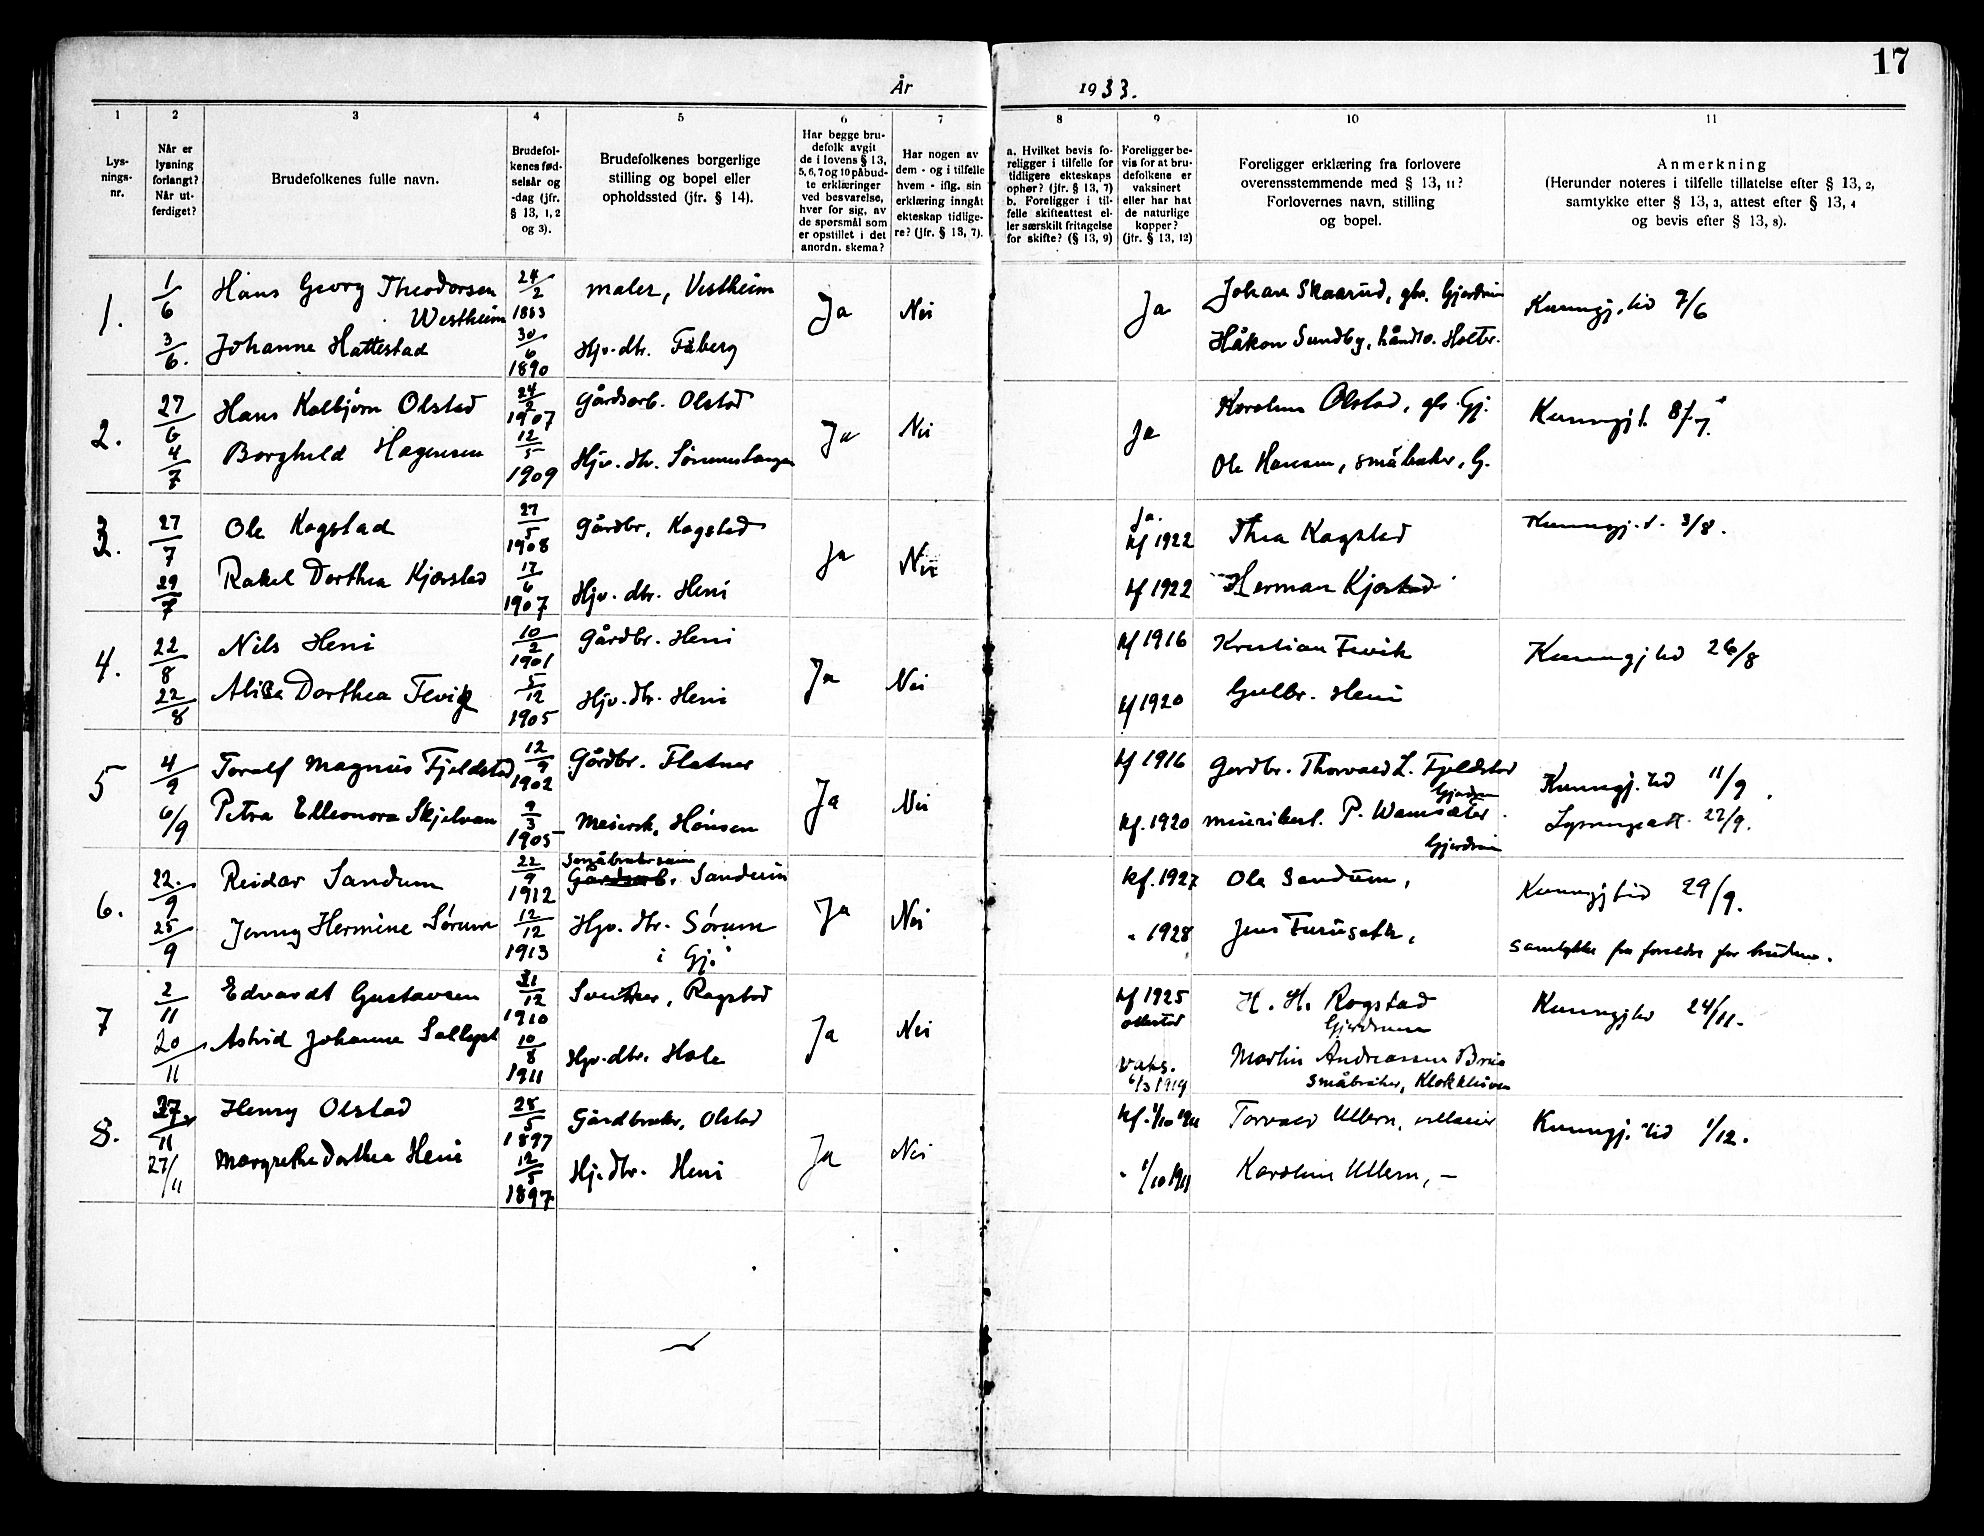 17
År 1933.
1 2 3 4 5 6 7 8 9 10 11
Lys-
nings-
nr.
Når er
lysning
forlangt?
Når ut-
ferdiget?
Brudefolkenes fulle navn.
Brudefol-
kenes fød-
selsår og
-dag (jfr.
§ 13, 1, 2
og 3).
Brudefolkenes borgerlige
stilling og bopel eller
opholdssted (jfr. § 14).
Har begge bru-
defolk avgit
de i lovens § 13,
5, 6, 7 og 10 påbud-
te erklæringer
ved besvarelse,
hver for sig, av
de spørsmål som
er opstillet i det
anordn. skema?
Har nogen av
dem - og i tilfelle
hvem - iflg. sin
erklæring inngått
ekteskap tidlige-
re? (jfr. § 13, 7).
a. Hvilket bevis fo-
religger i tilfelle for
tidligere ekteskaps
ophør? (jfr. § 13, 7)
b. Foreligger i til-
felle skifteattest el-
ler særskilt fritagelse
for skifte? (§ 13, 9)
Foreligger be-
vis for at bru-
defolkene er
vaksinert
eller har hat
de naturlige
kopper?
(jfr. § 13, 12)
Foreligger erklæring fra forlovere
overensstemmende med § 13, 11?
Forlovernes navn, stilling
og bopel.
Anmerkning
(Herunder noteres i tilfelle tillatelse efter § 13, 2,
samtykke efter § 13, 3, attest efter § 13, 4
og bevis efter § 13, 8).
1. 1/6 Hans Georg Theodorsen 24/2 maler, Vestheim Ja Nei Ja Johan Skaarud, gbr. Gjerdrum Kunngj. tid 7/6
Westheim 1863
3/6. Johanne Hattestad 30/6 1890 Hjv. dtr. Fåberg Håkon Sundby, håndv. Holter.
2. 27/6 Hans Kolbjørn Olstad 24/2 1907 Gårdsarb. Olstad Ja Nei Ja Karolius Olstad, gbr. Gj. Kunngj t. 8/7.
4/7 Borghild Hagensen 12/5 1909 Hjv. dtr. Ole Hansen, småbruker, G.
3. 27/7 Ole Kogstad 27/5 1908 Gårdbr. Kogstad Ja Nei Ja. kf 1922 Thea Kogstad Kunngj. t. 3/8.
29/7 Rakel Dorthea Kjorstad 17/6 1907 Hjv. dtr. Heni kf 1922 Herman Kjorstad
4. 22/8 Nils Heni 10/2 1901 Gårdbr. Heni Ja Nei kf 1916 Kristian Fevik Kunngj tid 26/8
22/8 Alise Dorthea Fevig 5/12 1905 Hjv. dtr. Heni kf 1920 Gulbr. Heni
5 4/9 Toralf Magnus Fjeldstad 12/9 1902 Gårdbr. Flatner Ja Nei kf 1916 Gardbr. Thorvald L. Fjeldstad Kunngj. tid 11/9.
Gjerdrum
6/9 Petra Elleonora Skjelvan 9/3 1905 Meiersk, Hønsen kf. 1920 P. Lysningsatt. 22/9.
Gjerdrum
6. 22./9 Reidar Sandum 22/9 1912 Gårdsarb. Sandum Ja Nei kf. 1927 Ole Sandum, Kunngj tid 29/9.
25/9 Jenny Hermine Sørum 12/12 1913 Hjv. dtr. Sørum " 1928 Jens Furuseth, Samtykke fra foreldre for bruden.
i Gj.
7 2/11 Edvardt Gustavsen 31/12 1910 Sveitser, Rogstad Ja Nei kf 1925 H. H. Rogstad Kunngj tid 24/11.
Gjerdrum
20/11 Astrid Johanne 10/8 1911 Hjv. dtr. Hole Vaks. 6/3 1919 Martin Andreassen
småbruker,
8. 27/11 Henry Olstad 28/5 1897 Gårdbruker, Olstad Ja Nei kf. 1/10 1911 Torvald Ullern, Kunngj. tid 1/12.
27/11 Margrethe Dorthea Heni 12/5 1897 Hj. dtr. Heni " 1/10 1911 Karoline Ullern, —